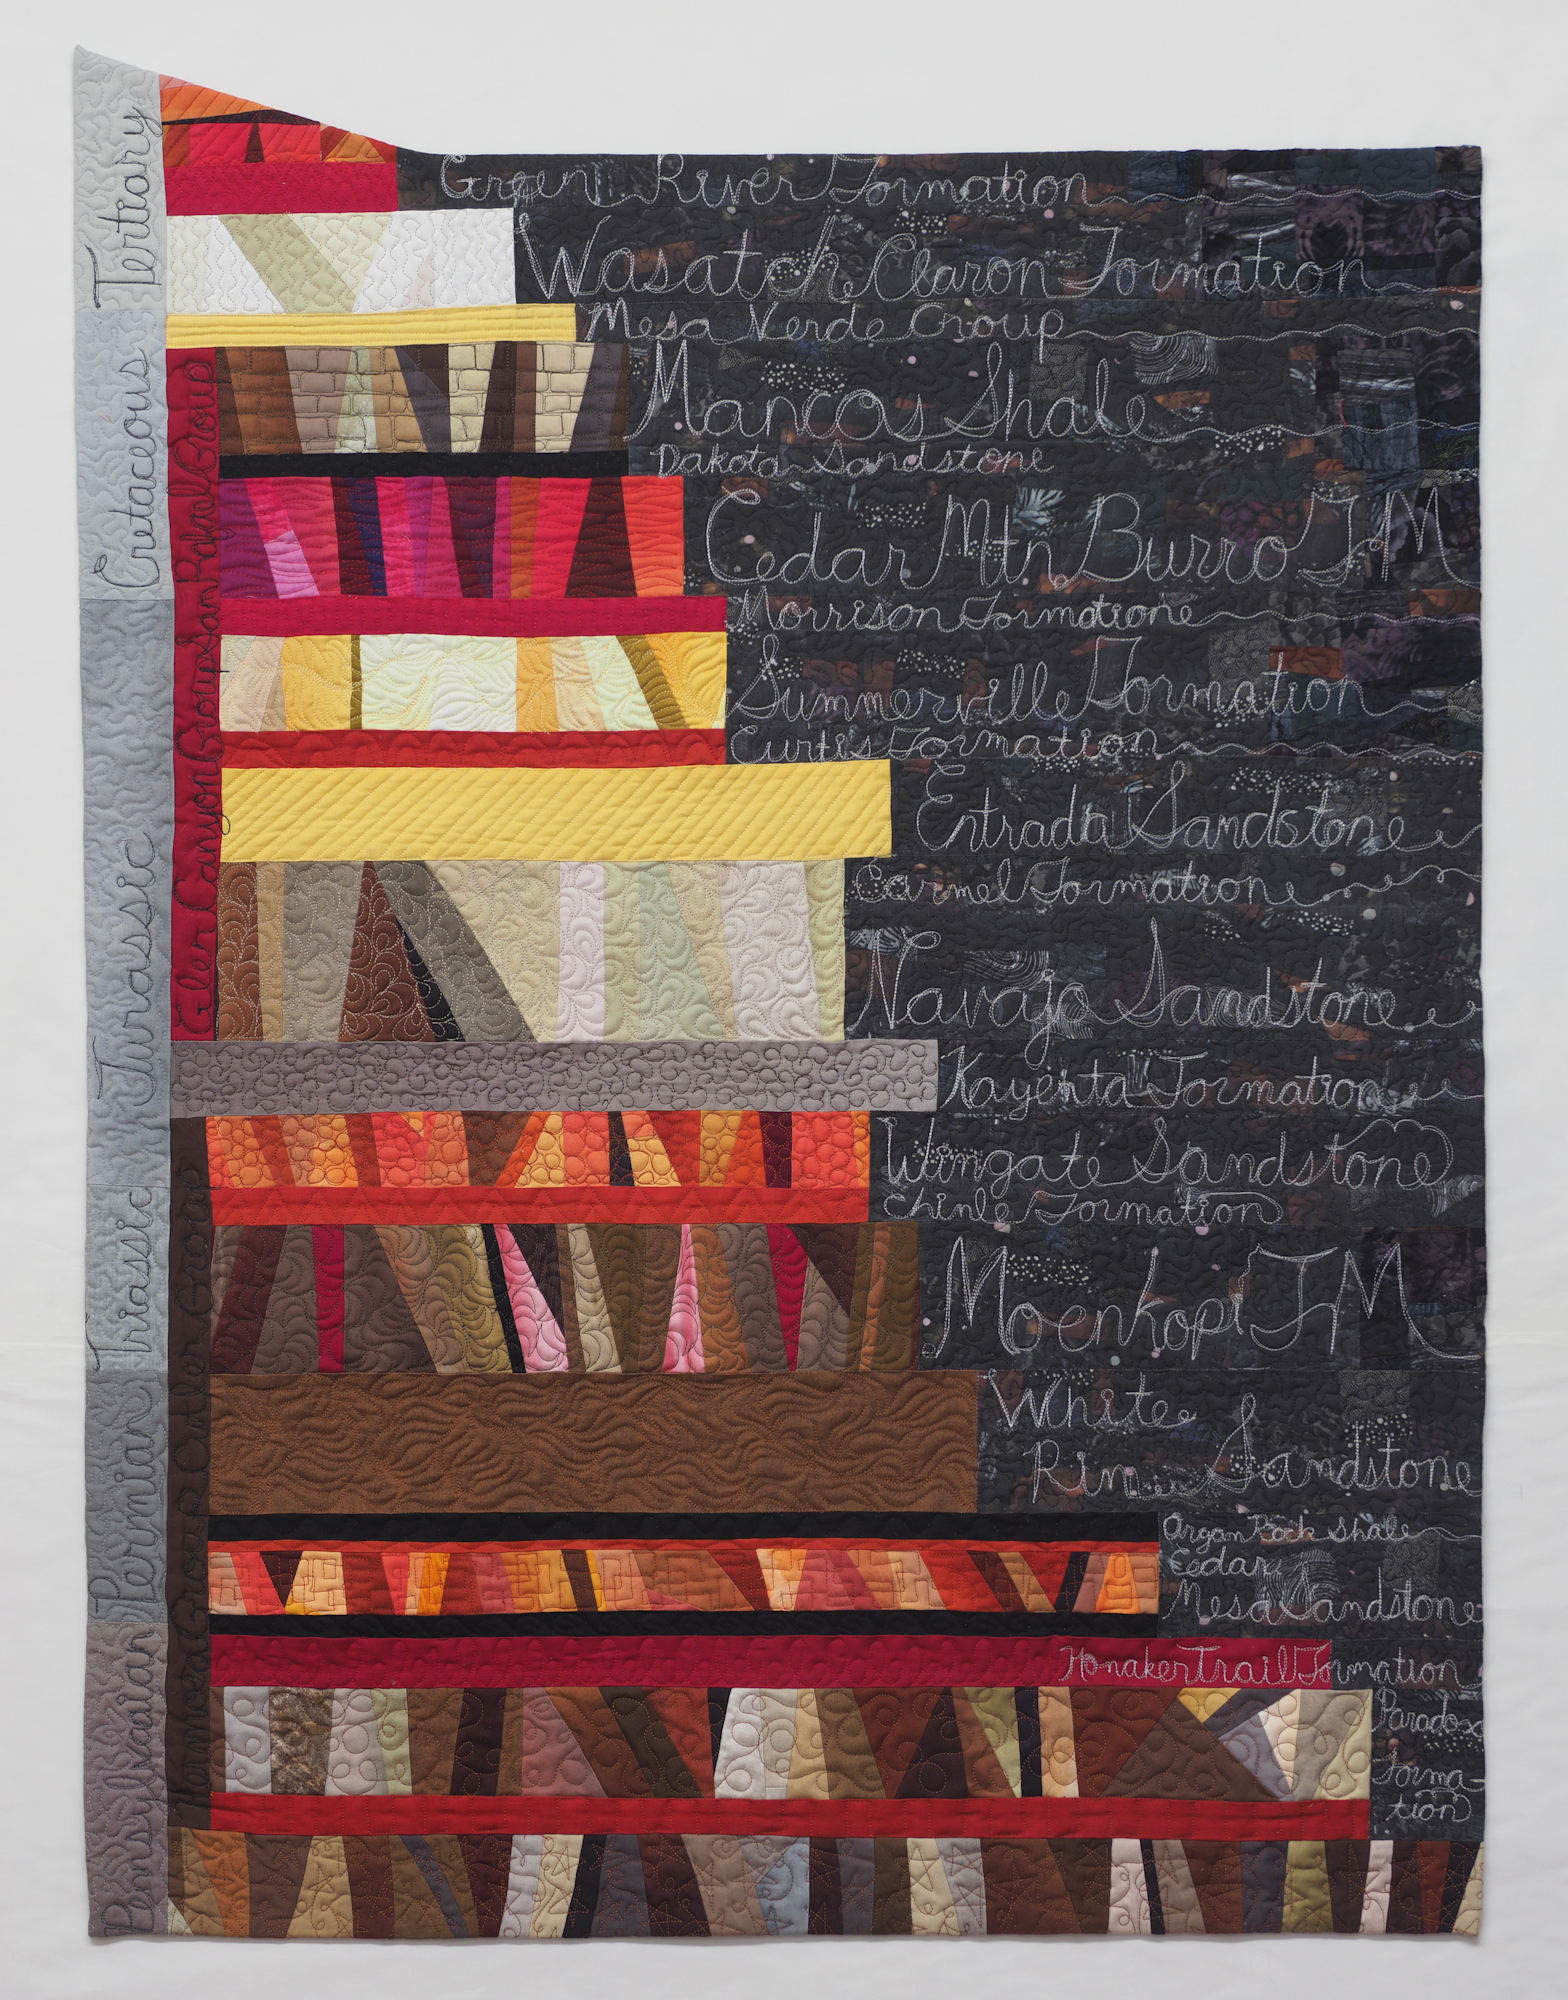 Tertiary
Cretaceous
Jurassic
Triassic
Permian
Glen Canyon Group San Rafael Group
Cutler Group
Green River Formation
Wasatch Claron Formation
Mesa Verde Group
Mancos Shale
Dakota Sandstone
Cedar Mtn Burro FM
Morrison Formation
Summerville Formation
Curtis Formation
Entrada Sandstone
Carmel Formation
Navajo Sandstone
Kayenta Formation
Wingate Sandstone
Chinle Formation
Moenkopi FM
White
Rim Sandstone
Organ Rock Shale
Cedar
Mesa Sandstone
Honaker Trail Formation
Paradox
Forma-
tion